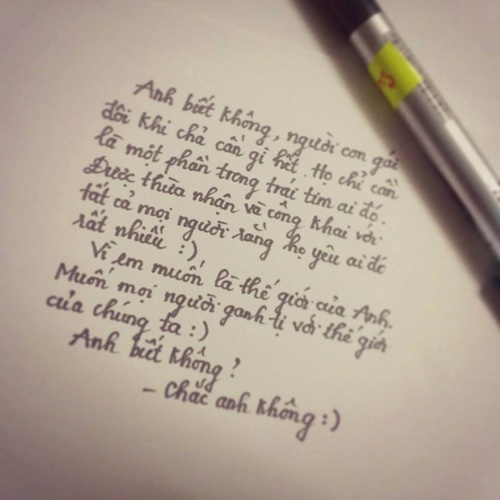 Anh biết không, người con gái
đôi khi chả cần gì hết. Họ chỉ cần
là một phần trong trái tim ai đó.
Được thừa nhận và công khai với
tất cả mọi người rằng họ yêu ai đó
rất nhiều :)
Vì em muốn là thế giới của Anh.
Muốn mọi người ganh tị với thế giới
của chúng ta :)
Anh biết không?
- Chắc anh không :)